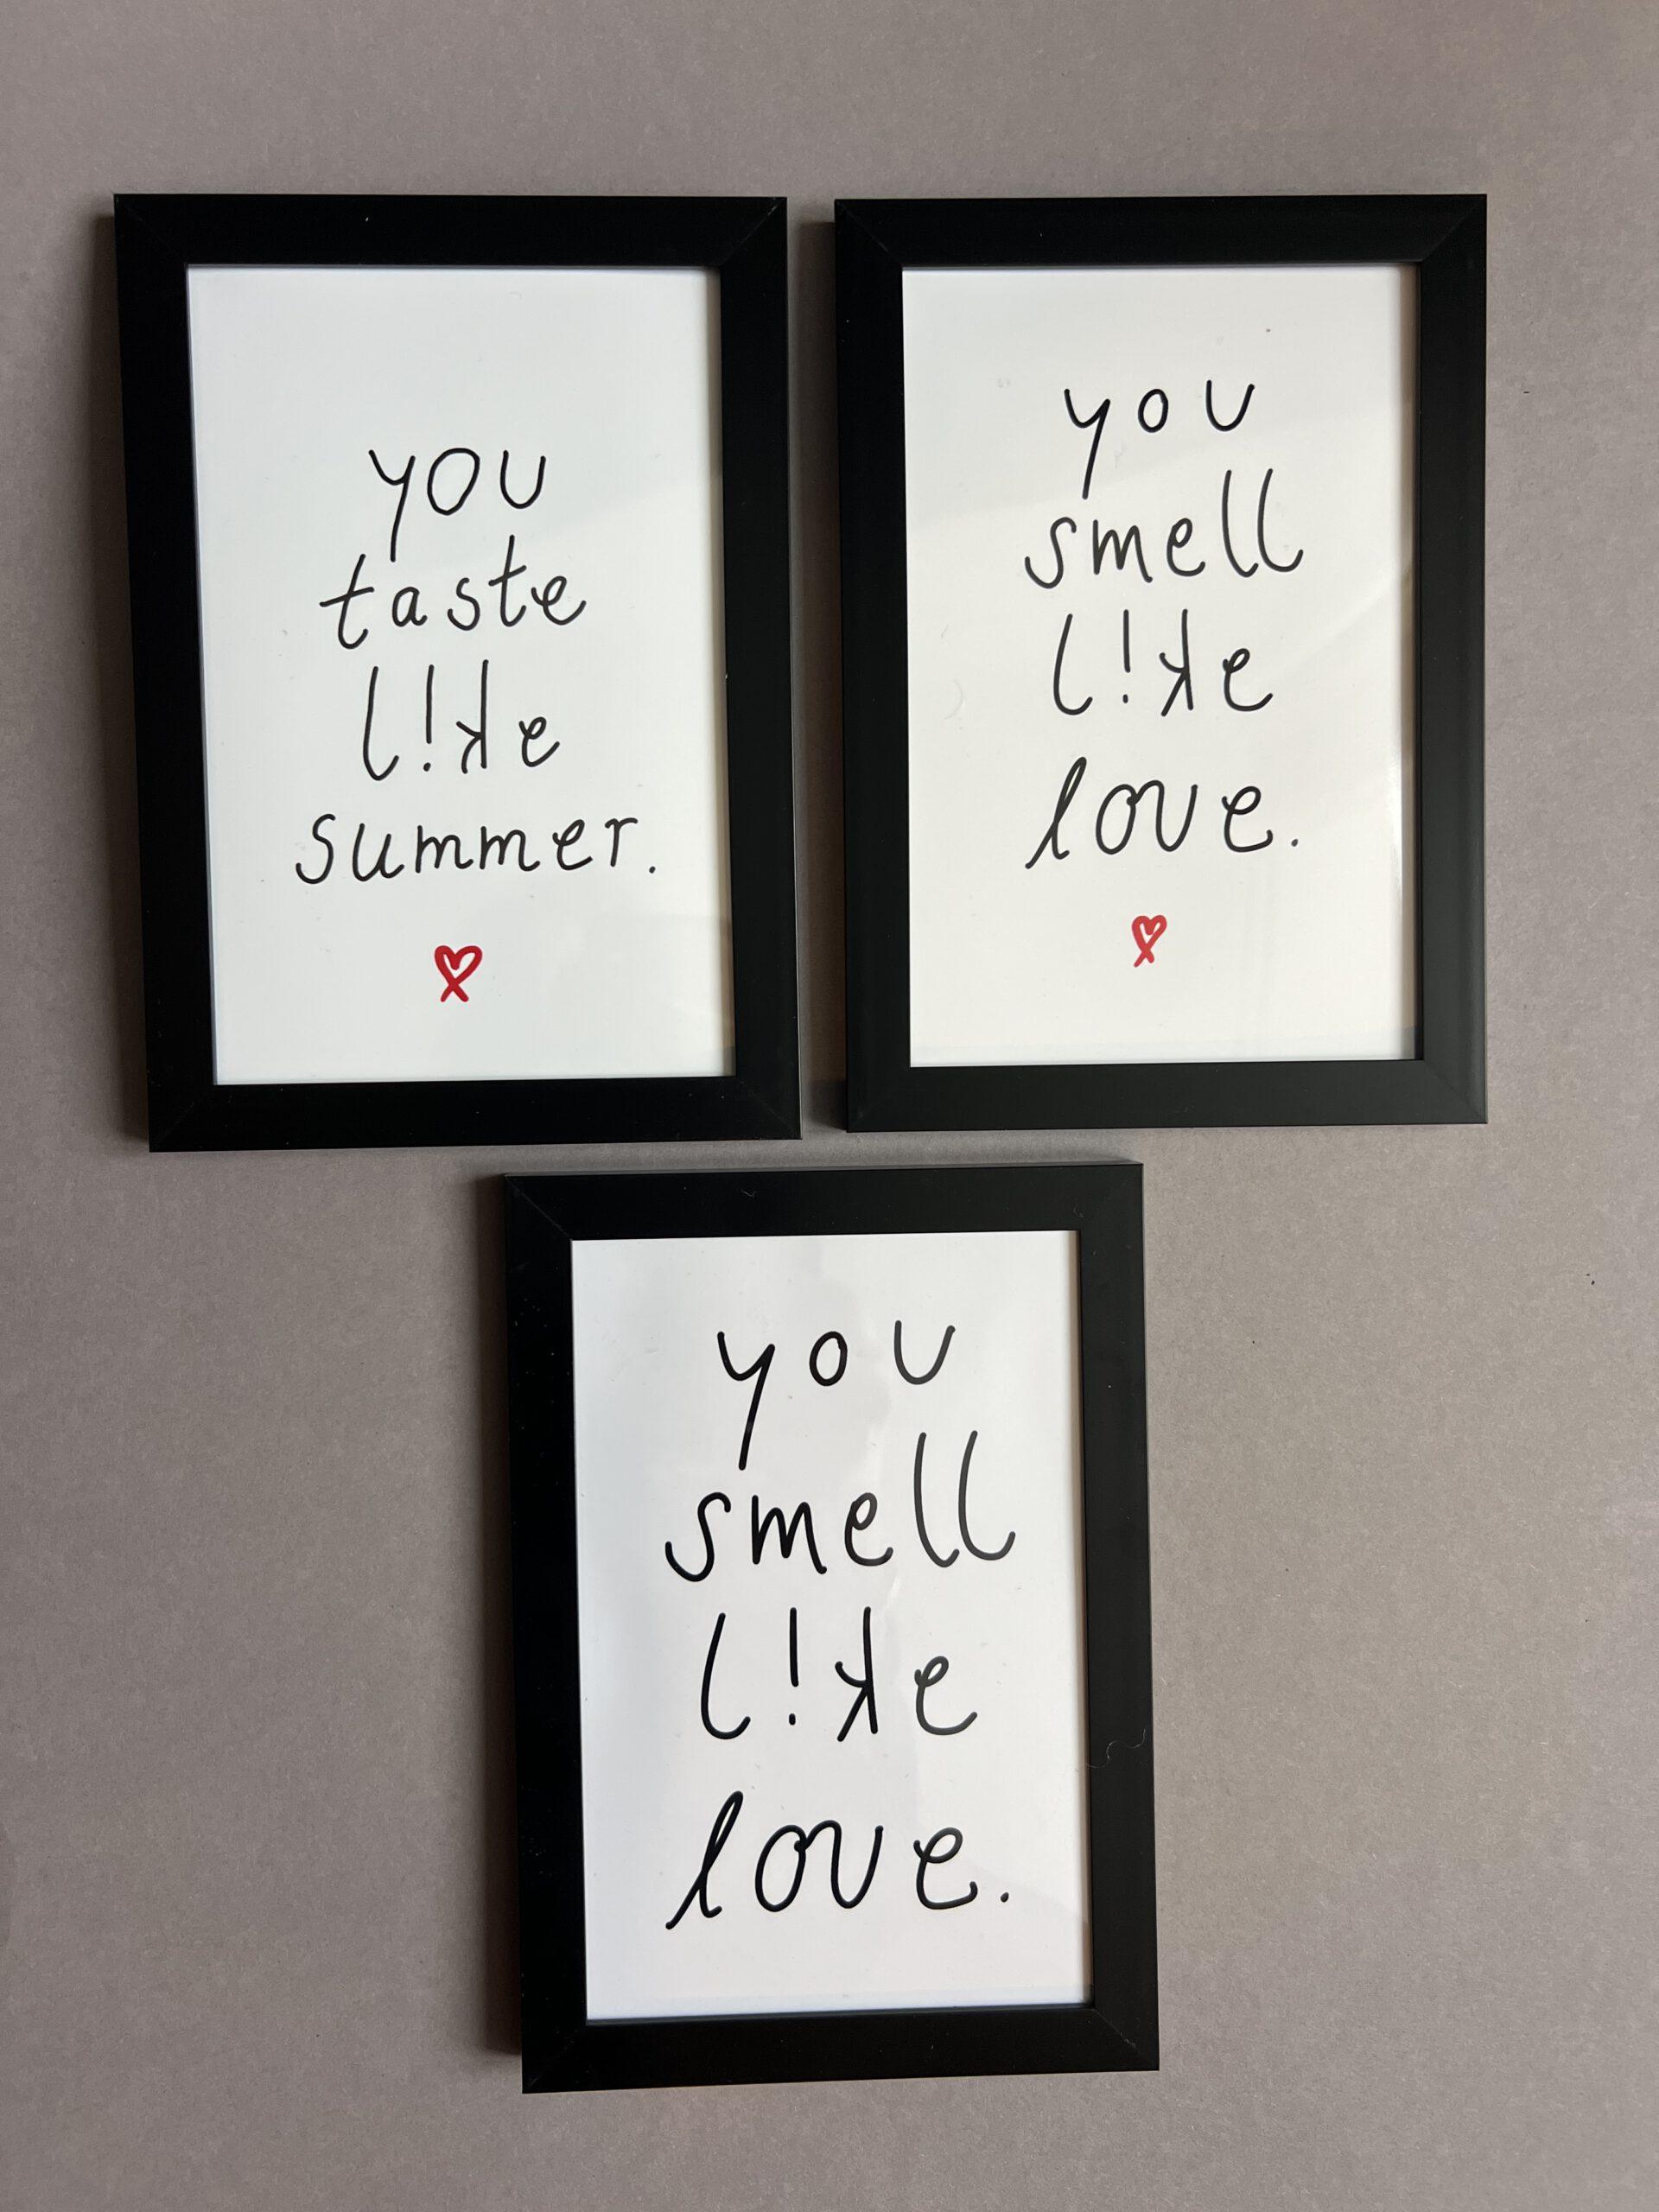 you
taste
l!ke
summer.
you
smell
l!ke
love.
you
smell
l!ke
love.